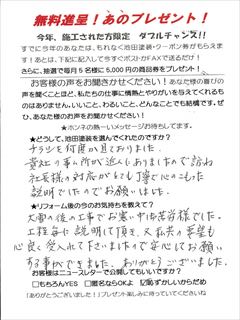 無料進呈！あのプレゼント！
今年、施工された方限定 ダブルチャンス!!
すでに今年のあなたは、もれなく池田塗装・クーポン券がもらえま
す！あとは、下記に記入して今すぐポストかFAXで送るだけ！
さらに、抽選で毎月5名様に5,000円の商品券をプレゼント！
お客様の声をお聞かせください！あなた様の喜びの
声を聞くことほど、私たちの仕事に情熱とやりがいを与えてくれるも
のはありません。いいこと、わるいこと、どんなことでも結構です。ぜ
ひ、あなた様の声をお聞かせください！
★ホンネの熱〜いメッセージお待ちしてます。
★どうして、池田塗装を選んでくれたのですか？
チラシを何度か見ておりました。
貴社の事ム所が近くにありましたので訪ね
社長様の対応がとても丁寧で心のこもった
説明でしたのでお願いしました。
★リフォーム後の今のお気持ちを教えて？
大雪の後の工事でお寒い中御苦労様でした。
工程毎に説明して頂き、又私共の希望も
心良く受入れて下さいましたので安心してお願い
する事ができました。ありがとうございました。
お客様はニュースレターで公開してもいいですか？
□もちろんYES □匿名ならOK ☑恥ずかしいからだめ
「ありがとうございました！」プレゼント楽しみに待っていてくださいね